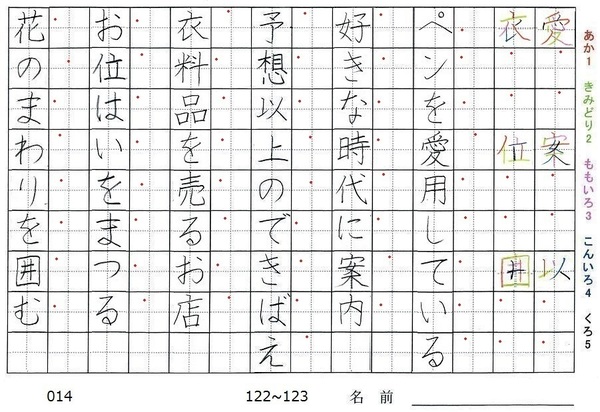 あか1 きみどり2 ももいろ3 こんいろ4 くろ5
愛 案 以
衣 位 囲
ペンを愛用している
好きな時代に案内
予想以上のできばえ
衣料品を売るお店
お位はいをまつる
花のまわりを囲む
014 122~123 名前